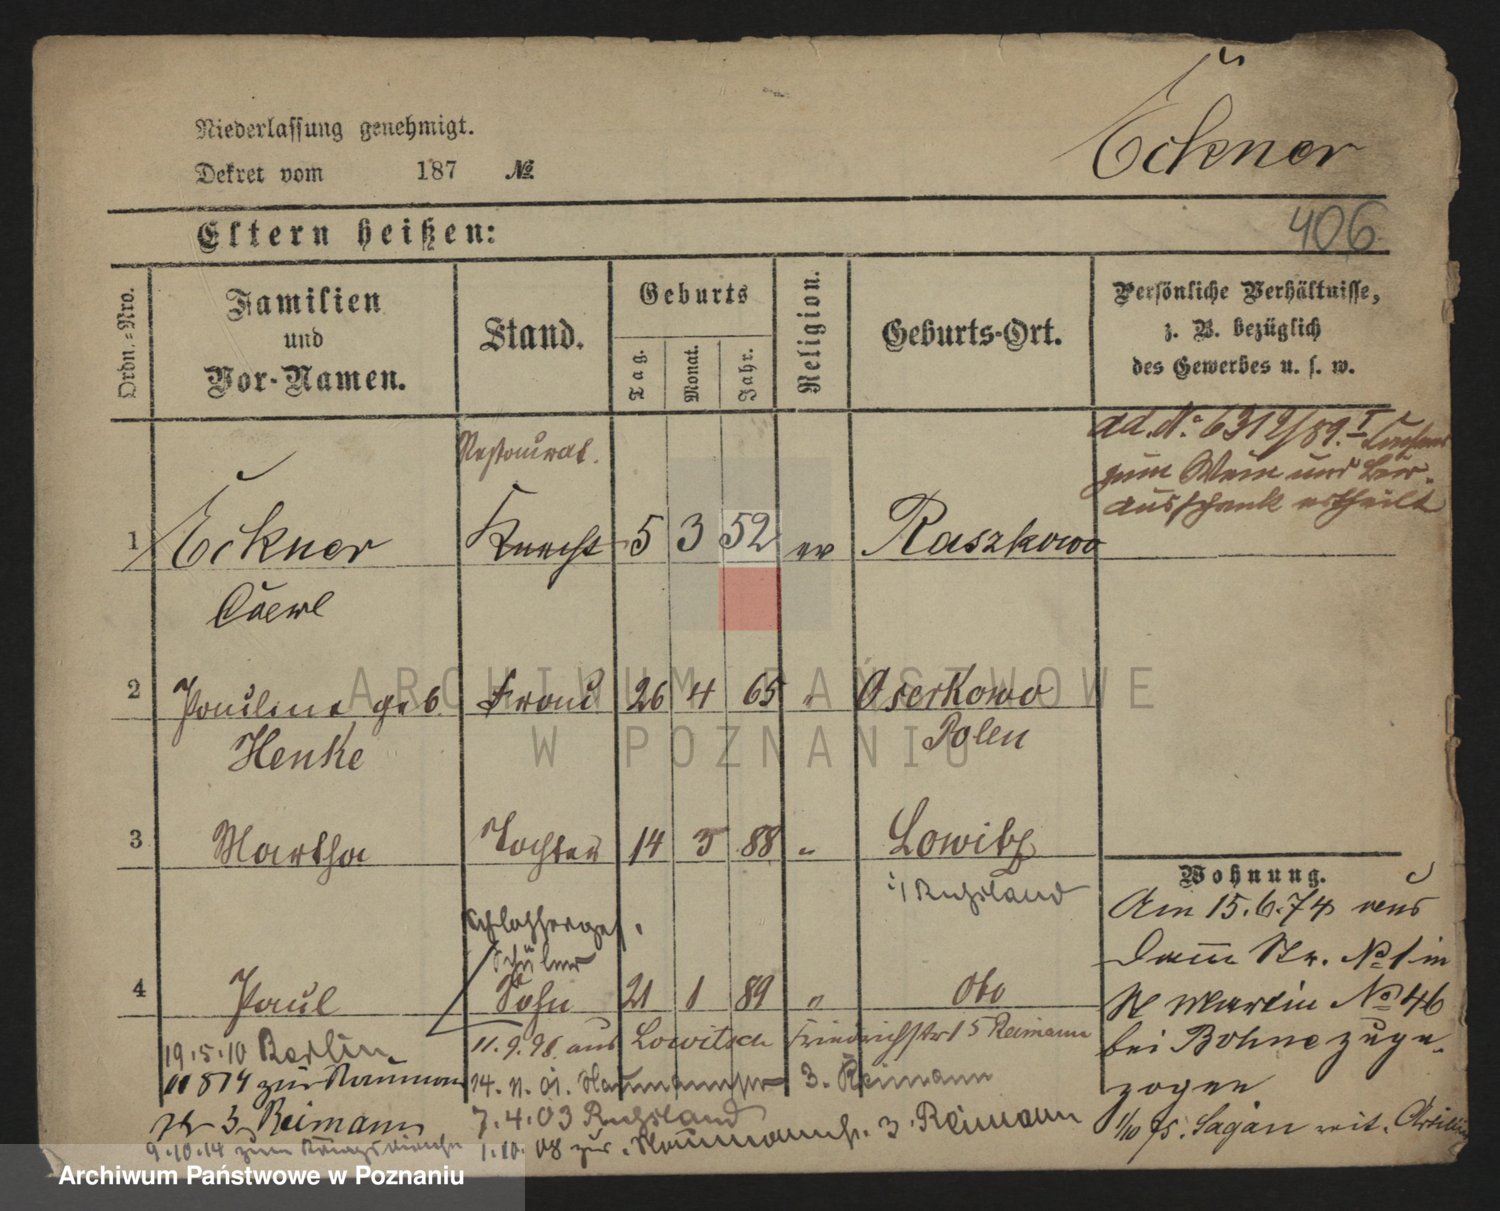 Eckner
Niederlassung genehmigt.
Dekret vom 187 №.
406
Eltern heißen:
Ordn.-Nro.
Familien
und
Vor-Namen.
Stand.
Geburts
Tag.
Monat.
Jahr.
Religion.
Geburts-Ort.
Persönliche Verhältnisse,
z. B. bezüglich
des Gewerbes u. s. w.
ad. № 6319/89. I
zum Wein und Bier-
ausschank ertheilt
Restaurat.
1 Eckner Knecht 5 3 52 ev Raszkowo
2 Pauline geb. Frau 26 4 65 " Oserkowo
Henke Polen
3 Martha Tochter 14 5 88 " Lowitsch
i/Russland
Schlosserges.
Schüler
4 Paul Sohn 21 1 89 " oto
Wohnung.
Am 15.6.74 von
Damm Str. № 1 in
St Martin № 46
bei Bohne zuge-
zogen
1/10 75. Sagan mit. Artillerie
19.5.10 Berlin
11.9.98. aus Lowitsch Friedrichstr 15 Reimann
zur Naumann
14.11.01. Naumannstr 3. Reimann
str 3 Reimann
7.4.03 Russland
9.10.14 zum Kriegsdienste
1.10.08 zur. Naumannstr. 3. Reimann
ARCHIWUM PAŃSTWOWE
W POZNANIU
Archiwum Państwowe w Poznaniu